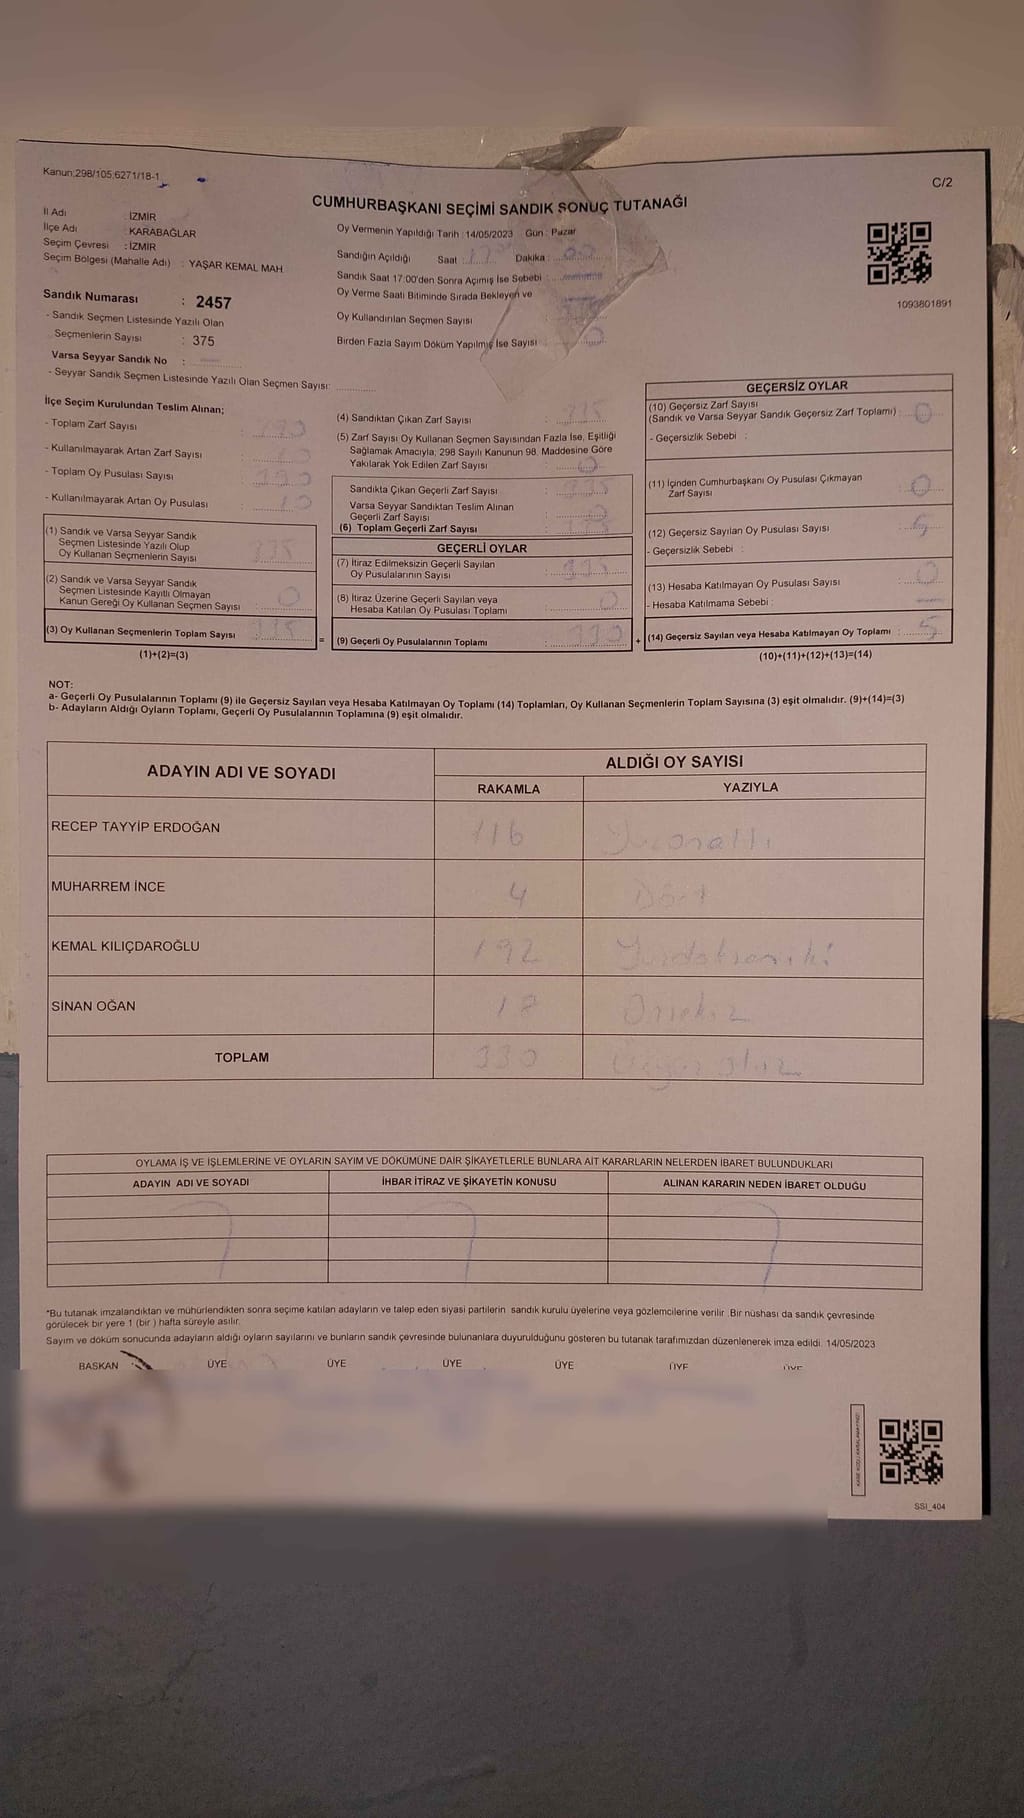 Kanun;298/105,6271/18-1
C/2
CUMHURBAŞKANI SEÇİMİ SANDIK SONUÇ TUTANAĞI
İl Adı : İZMİR
İlçe Adı : KARABAĞLAR
Seçim Çevresi : İZMİR
Seçim Bölgesi (Mahalle Adı) : YAŞAR KEMAL MAH
Sandık Numarası : 2457
- Sandık Seçmen Listesinde Yazılı Olan
Seçmenlerin Sayısı : 375
Varsa Seyyar Sandık No :
- Seyyar Sandık Seçmen Listesinde Yazılı Olan Seçmen Sayısı:
Oy Vermenin Yapıldığı Tarih : 14/05/2023 Gün : Pazar
Sandığın Açıldığı Saat : 17 Dakika : 00
Sandık Saat 17:00'den Sonra Açımış İse Sebebi :
Oy Verme Saati Bitiminde Sırada Bekleyen ve
Oy Kullandırılan Seçmen Sayısı :
Birden Fazla Sayım Döküm Yapılmış İse Sayısı :
1093801891
İlçe Seçim Kurulundan Teslim Alınan;
- Toplam Zarf Sayısı : 390
- Kullanılmayarak Artan Zarf Sayısı :
- Toplam Oy Pusulası Sayısı : 390
- Kullanılmayarak Artan Oy Pusulası :
(1) Sandık ve Varsa Seyyar Sandık
Seçmen Listesinde Yazılı Olup
Oy Kullanan Seçmenlerin Sayısı : 335
(2) Sandık ve Varsa Seyyar Sandık
Seçmen Listesinde Kayıtlı Olmayan
Kanun Gereği Oy Kullanan Seçmen Sayısı : 0
(3) Oy Kullanan Seçmenlerin Toplam Sayısı : 335
(1)+(2)=(3)
(4) Sandıktan Çıkan Zarf Sayısı : 335
(5) Zarf Sayısı Oy Kullanan Seçmen Sayısından Fazla İse, Eşitliği
Sağlamak Amacıyla, 298 Sayılı Kanunun 98. Maddesine Göre
Yakılarak Yok Edilen Zarf Sayısı : 0
Sandıkta Çıkan Geçerli Zarf Sayısı : 335
Varsa Seyyar Sandıktan Teslim Alınan
Geçerli Zarf Sayısı : 0
(6) Toplam Geçerli Zarf Sayısı : 335
GEÇERLİ OYLAR
(7) İtiraz Edilmeksizin Geçerli Sayılan
Oy Pusulalarının Sayısı :
(8) İtiraz Üzerine Geçerli Sayılan veya
Hesaba Katılan Oy Pusulası Toplamı : 0
= (9) Geçerli Oy Pusulalarının Toplamı : 330
GEÇERSİZ OYLAR
(10) Geçersiz Zarf Sayısı
(Sandık ve Varsa Seyyar Sandık Geçersiz Zarf Toplamı) : 0
- Geçersizlik Sebebi :
(11) İçinden Cumhurbaşkanı Oy Pusulası Çıkmayan
Zarf Sayısı : 0
(12) Geçersiz Sayılan Oy Pusulası Sayısı : 5
- Geçersizlik Sebebi :
(13) Hesaba Katılmayan Oy Pusulası Sayısı : 0
- Hesaba Katılmama Sebebi :
+ (14) Geçersiz Sayılan veya Hesaba Katılmayan Oy Toplamı : 5
(10)+(11)+(12)+(13)=(14)
NOT:
a- Geçerli Oy Pusulalarının Toplamı (9) ile Geçersiz Sayılan veya Hesaba Katılmayan Oy Toplamı (14) Toplamları, Oy Kullanan Seçmenlerin Toplam Sayısına (3) eşit olmalıdır. (9)+(14)=(3)
b- Adayların Aldığı Oyların Toplamı, Geçerli Oy Pusulalarının Toplamına (9) eşit olmalıdır.
ADAYIN ADI VE SOYADI
ALDIĞI OY SAYISI
RAKAMLA YAZIYLA
RECEP TAYYİP ERDOĞAN 116 Yüzonaltı
MUHARREM İNCE 4 Dört
KEMAL KILIÇDAROĞLU 192 Yüzdoksaniki
SİNAN OĞAN 18 Onsekiz
TOPLAM 330 Üçyüz otuz
OYLAMA İŞ VE İŞLEMLERİNE VE OYLARIN SAYIM VE DÖKÜMÜNE DAİR ŞİKAYETLERLE BUNLARA AİT KARARLARIN NELERDEN İBARET BULUNDUKLARI
ADAYIN ADI VE SOYADI İHBAR İTİRAZ VE ŞİKAYETİN KONUSU ALINAN KARARIN NEDEN İBARET OLDUĞU
*Bu tutanak imzalandıktan ve mühürlendikten sonra seçime katılan adayların ve talep eden siyasi partilerin sandık kurulu üyelerine veya gözlemcilerine verilir. Bir nüshası da sandık çevresinde
görülecek bir yere 1 (bir ) hafta süreyle asılır.
Sayım ve döküm sonucunda adayların aldığı oyların sayılarını ve bunların sandık çevresinde bulunanlara duyurulduğunu gösteren bu tutanak tarafımızdan düzenlenerek imza edildi. 14/05/2023
BAŞKAN ÜYE ÜYE ÜYE ÜYE ÜYE ÜYE
SSI_404